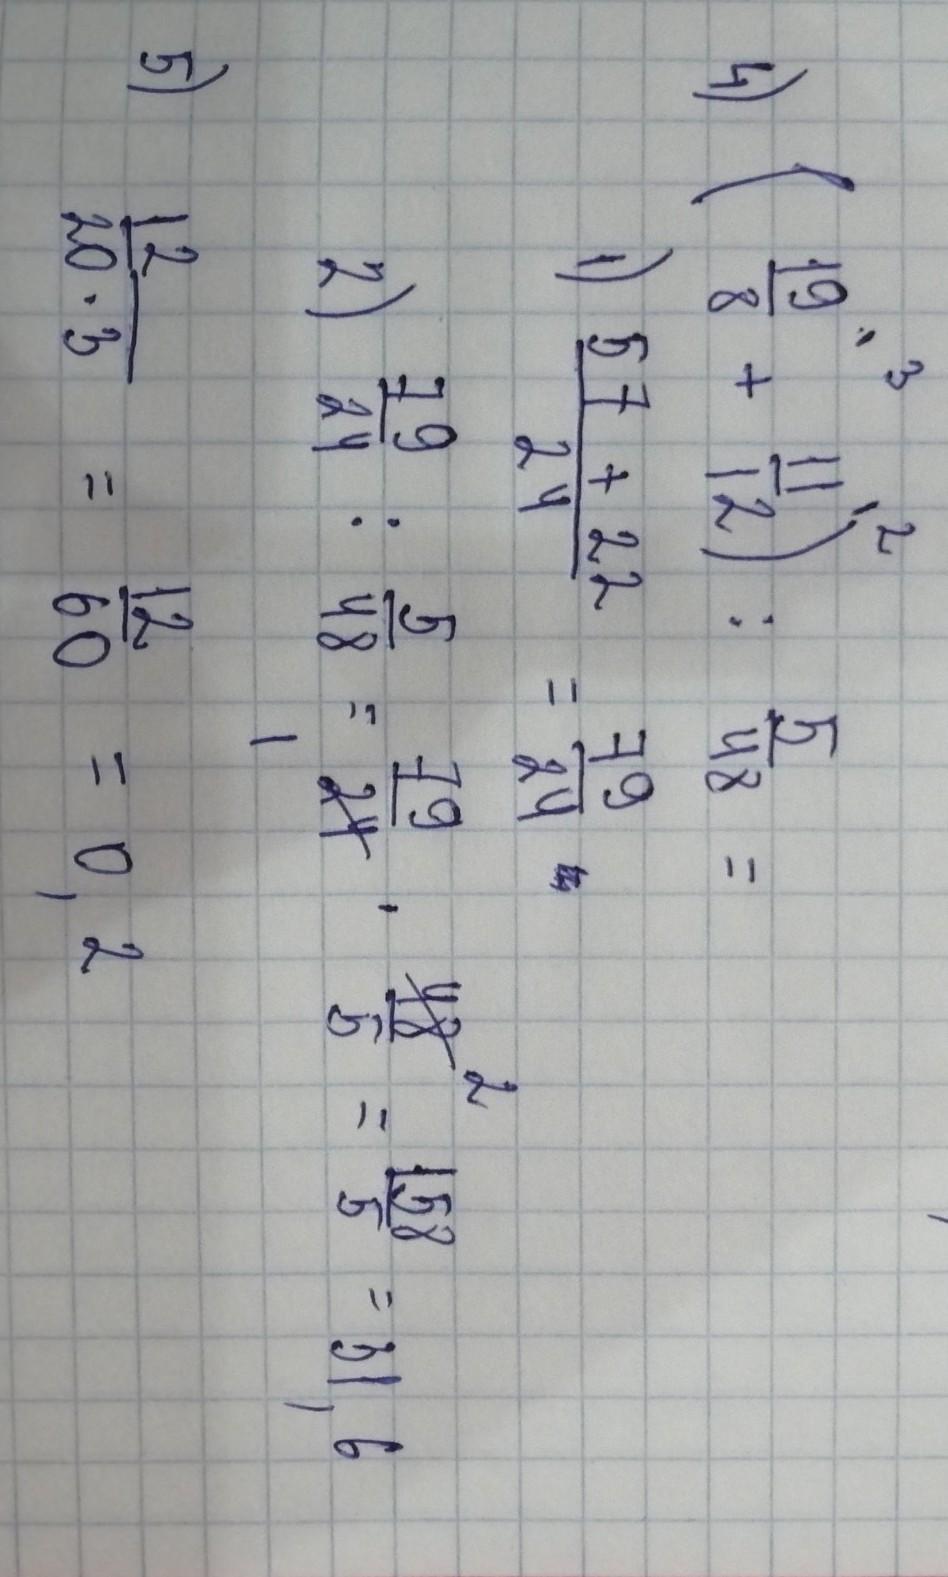 4) (19/8 ·3 + 11/12 ·2) : 5/48 =
1) 57 + 22/24 = 79/24
2) 79/24 : 5/48 = 79/24 1 · 48/5 2 = 158/5 = 31,6
5) 12/20 · 3 = 12/60 = 0,2